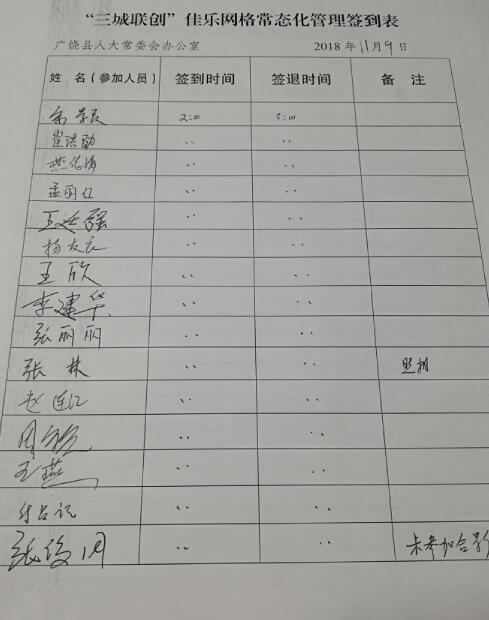 “三城联创”佳乐网格常态化管理签到表
广饶县人大常委会办公室 2018年11月9日
姓 名(参加人员) 签到时间 签退时间 备 注
2:00 5:00
崔洪勋 〃 〃
燕 〃 〃
孟丽红 〃 〃
王延强 〃 〃
杨友庆 〃 〃
王欣 〃 〃
李建华 〃 〃
张丽丽 〃 〃
张林 〃 〃 照相
赵连江 〃 〃
周 〃 〃
王燕 〃 〃
付占記 〃 〃
张俊同 〃 〃 未参加合影